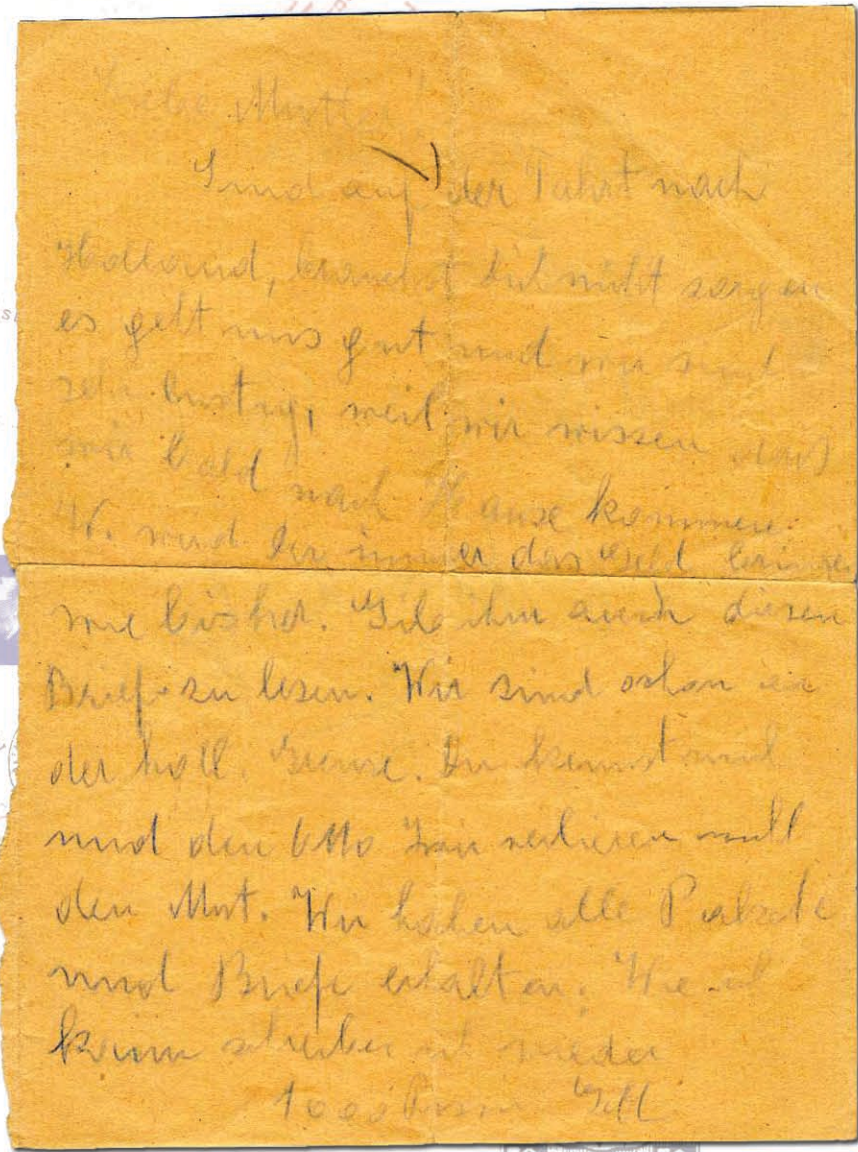 Liebe Mutter!
Sind auf der Fahrt nach
Holland, brauchst dich nicht sorgen
es geht uns gut und wir sind
sehr lustig, weil wir wissen das
wir bald nach Hause kommen.
W. wird dir immer das Geld bringen
wie bisher. Gib ihm auch diesen
Brief zu lesen. Wir sind schon an
der holl. Grenze. Du kennst mich
und den Otto wir verlieren nicht
den Mut. Wir haben alle Pakete
und Briefe erhalten. Wie ich
kann schreibe ich wieder
1000